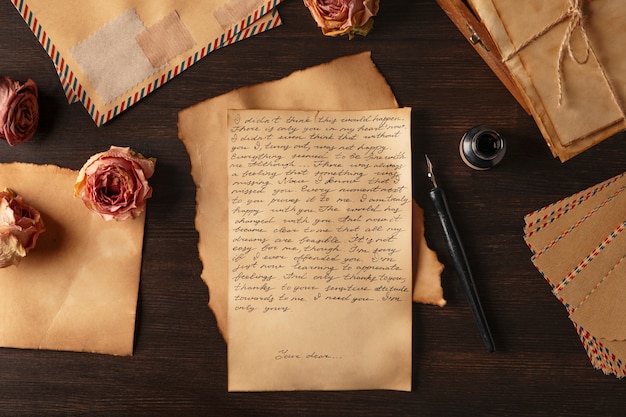 I didn't think this would happen.
There is only you in my heart now.
I didn't even think that without
you I, turns out, was not happy.
Everything seemed to be fine with
me although... There was always
a feeling that something was
missing. Now I know that I
missed you. Every moment next
to you proves it to me. I am truly
happy with you. The world has
changed with you. And now it
became clear to me that all my
dreams are feasible. It's not
easy for me, though. I'm sorry
if I ever offended you. I'm
just now learning to appreciate
feelings. And only thanks to you,
thanks to your sensitive attitude
towards to me. I need you. I'm
only yours.
Your dear...